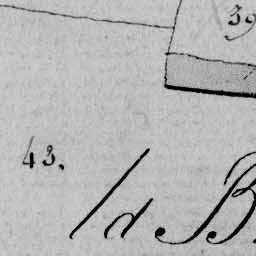 39
43.
/d B.